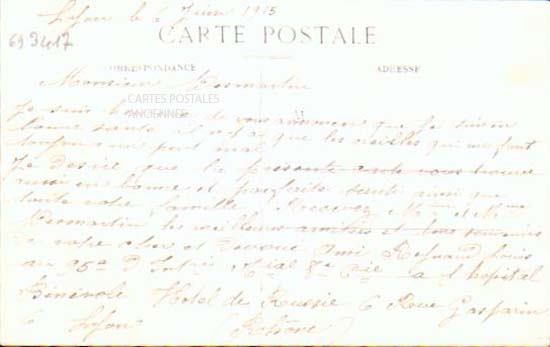 Lyon le 6 Juin 1915
69 3417
CARTE POSTALE
CORRESPONDANCE
ADRESSE
Monsieur Desmartin
CARTES POSTALES
ANCIENNES
Je suis de vous que je suis en
bonne santé il n'y a que les qui me font
toujours un peut mal
Je Desire que la présente carte vous trouve
aussi en bonne et parfaite santé ainsi que
toute votre famille Recevez Mr et Mme
Desmartin les meilleures amitiés et bons souvenirs
de votre cher et Devoué Ami Louis
au 95e D Inftrie 8e Cie a l hopital
Bénévole Hotel de Russie 6 Rue Gasparin
6 Lyon (Rhone)